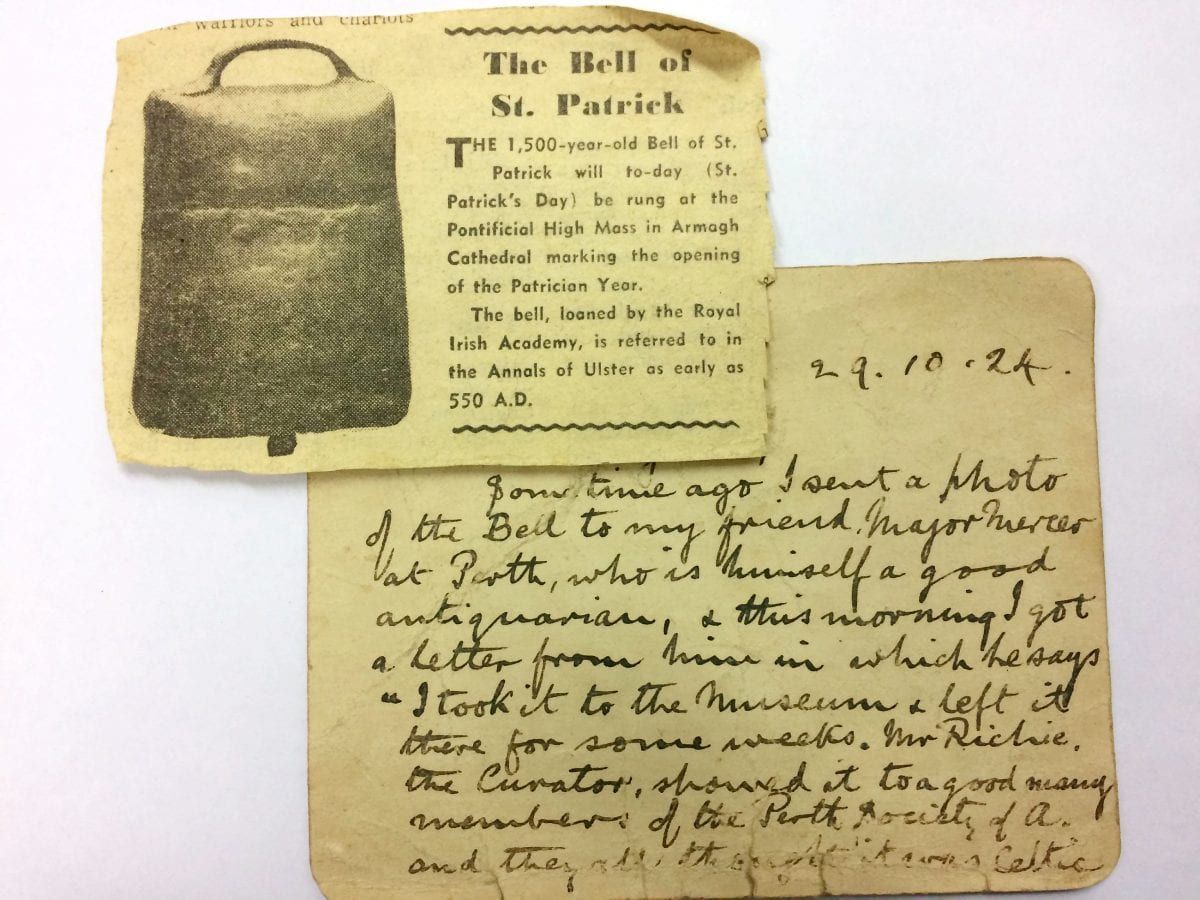 warriors and chariots
The Bell of
St. Patrick
THE 1,500-year-old Bell of St.
Patrick will to-day (St.
Patrick's Day) be rung at the
Pontificial High Mass in Armagh
Cathedral marking the opening
of the Patrician Year.
The bell, loaned by the Royal
Irish Academy, is referred to in
the Annals of Ulster as early as
550 A.D.
29.10.24.
Some time ago I sent a photo
of the Bell to my friend Major Mercer
at Perth, who is himself a good
antiquarian, & this morning I got
a letter from him in which he says
"I took it to the Museum & left it
there for some weeks. Mr Richie,
the Curator, showed it to a good many
members of the Perth Society of A.
and they all thought it was Celtic